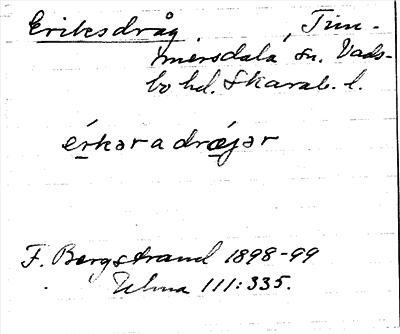 Eriksdråg, Tim-
mersdala sn. Vads-
bo hd. Skarab. l.
érkər a dræjər
F. Bergstrand 1898-99
Ulma 111:335.